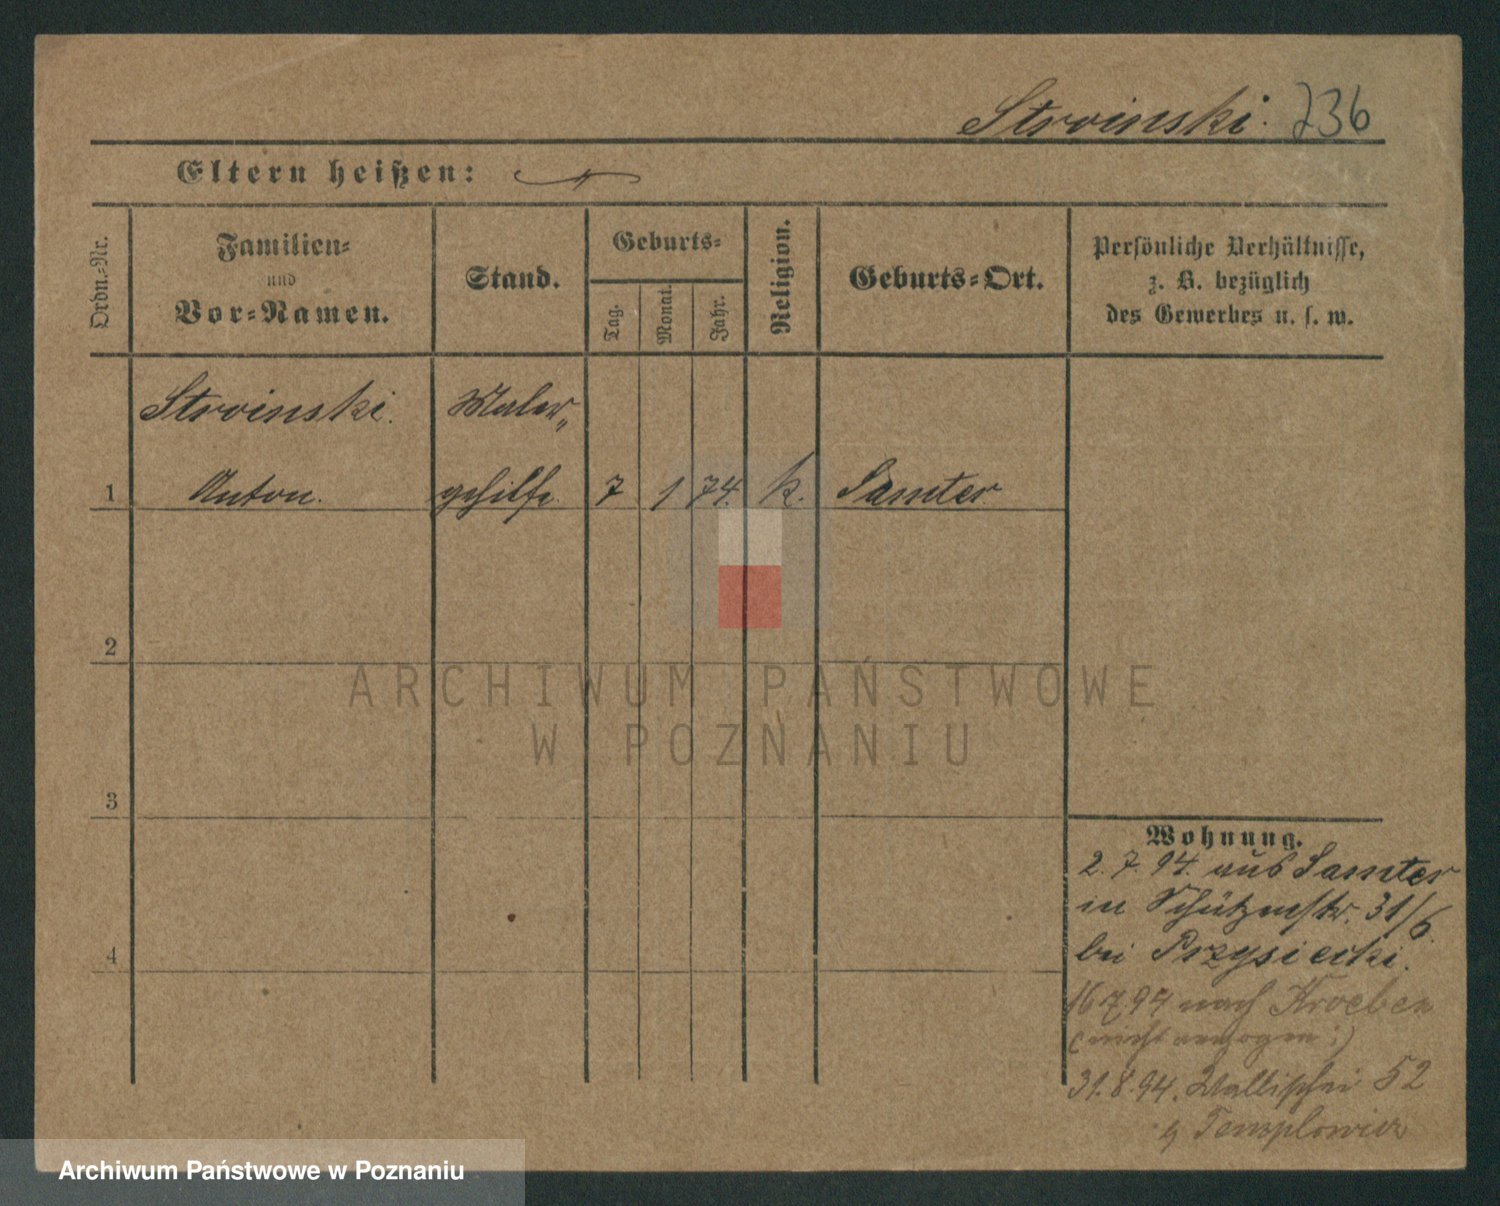 Stroinski. 236
Eltern heißen:
Ordn.-Nr.
Familien-
und
Vor-Namen.
Stand.
Geburts-
Tag.
Monat.
Jahr.
Religion.
Geburts-Ort.
Persönliche Verhältnisse,
z. B. bezüglich
des Gewerbes u. s. w.
Stroinski. Maler„
1 Anton. gehilfe. 7 1 74. k. Samter
2
3
4
ARCHIWUM PAŃSTWOWE
W POZNANIU
Wohnung.
2.7.94. aus Samter
in Schützenstr. 31/6.
bei Przysiecki.
16 7 94 nach Kroeben
(nicht :)
31.8.94. Wallischei 52
Templowicz
Archiwum Państwowe w Poznaniu